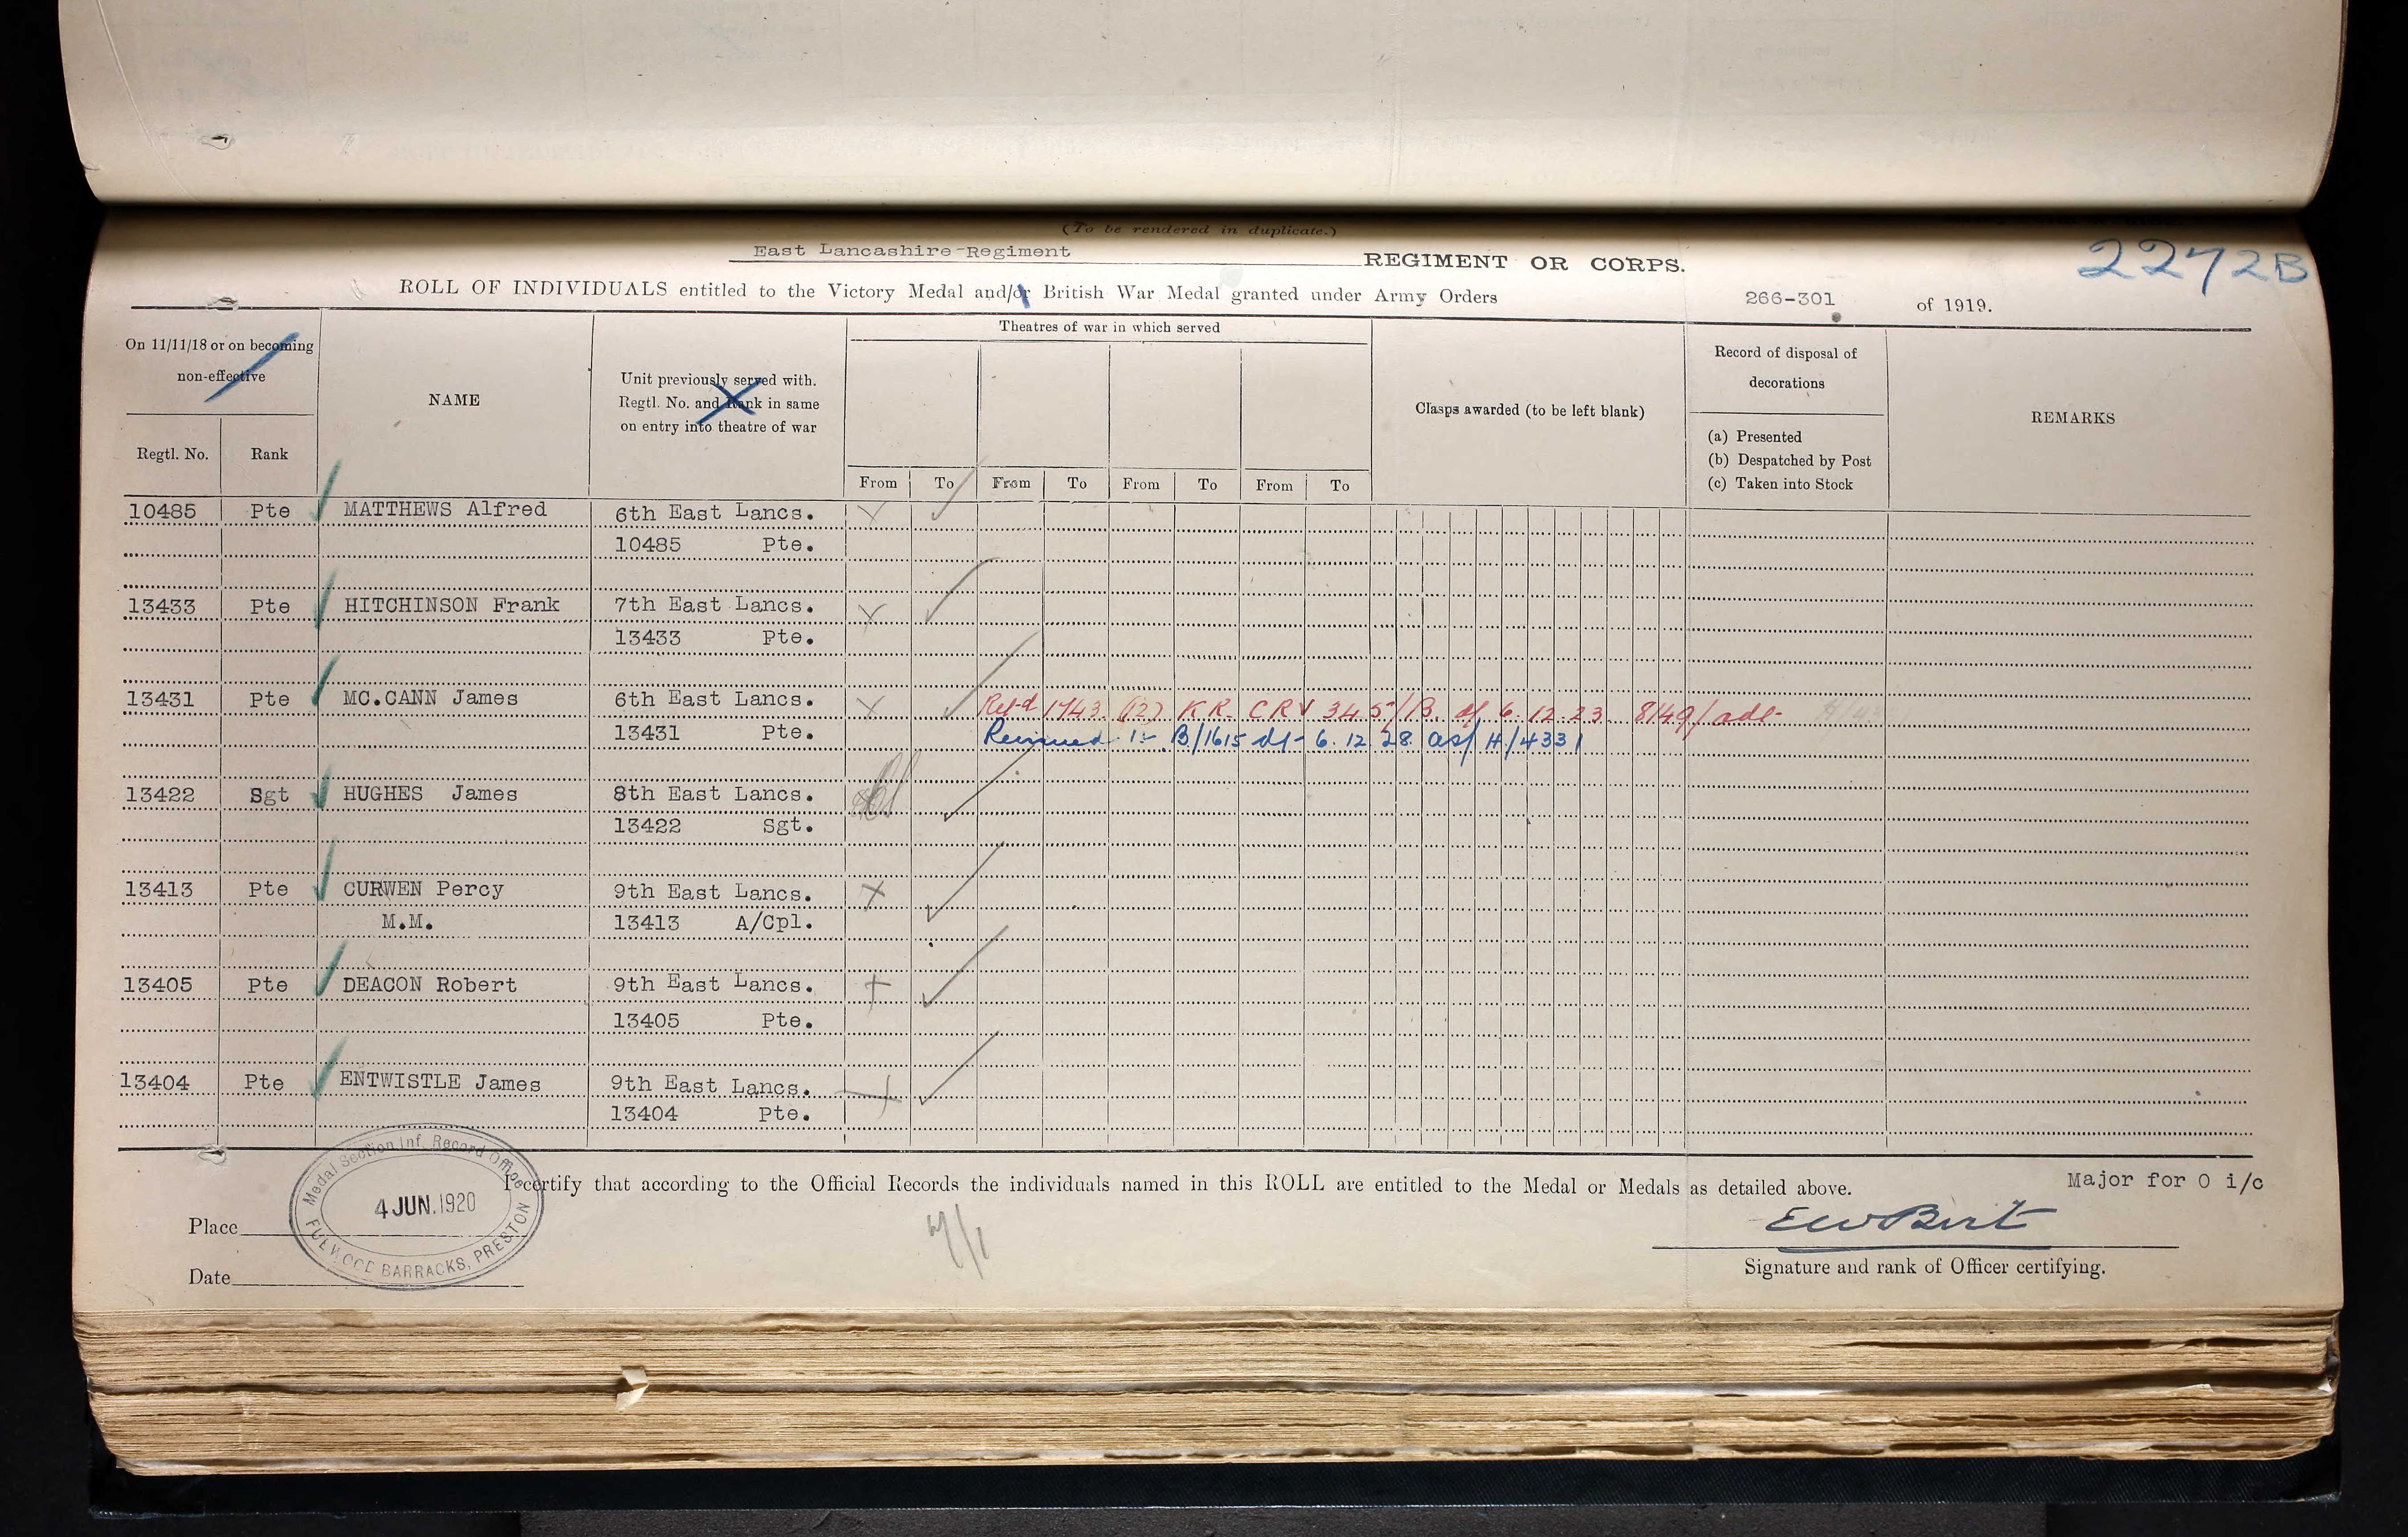 (To be rendered in duplicate.)
East Lancashire-Regiment REGIMENT OR CORPS.
2272B
ROLL OF INDIVIDUALS entitled to the Victory Medal and/or British War Medal granted under Army Orders 266-301 of 1919.
On 11/11/18 or on becoming
non-effective
Regtl. No.
Rank
NAME
Unit previously served with.
Regtl. No. and Rank in same
on entry into theatre of war
Theatres of war in which served
From To From To From To From To
Clasps awarded (to be left blank)
Record of disposal of
decorations
(a) Presented
(b) Despatched by Post
(c) Taken into Stock
REMARKS
10485 Pte MATTHEWS Alfred 6th East Lancs.
10485 Pte.
13433 Pte HITCHINSON Frank 7th East Lancs.
13433 Pte.
13431 Pte MC.CANN James 6th East Lancs. Ret-d 1743 (12) K R. C R V 345/B. df 6.12.23 8149/adt-
13431 Pte. B/1615 dt- 6.12.28. H/4331
13422 Sgt HUGHES James 8th East Lancs.
13422 Sgt.
13413 Pte CURWEN Percy 9th East Lancs.
M.M. 13413 A/Cpl.
13405 Pte DEACON Robert 9th East Lancs.
13405 Pte.
13404 Pte ENTWISTLE James 9th East Lancs.
13404 Pte.
I certify that according to the Official Records the individuals named in this ROLL are entitled to the Medal or Medals as detailed above.
Major for O i/c
EW Birt
Signature and rank of Officer certifying.
Place
Date
Medal Section Inf. Record Office
4 JUN. 1920
FULWOOD BARRACKS, PRESTON